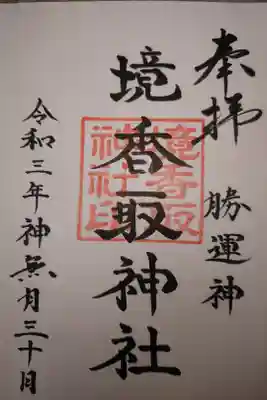 奉拝
勝運神
境香取神社
境香取
神社印
令和三年神無月三十日